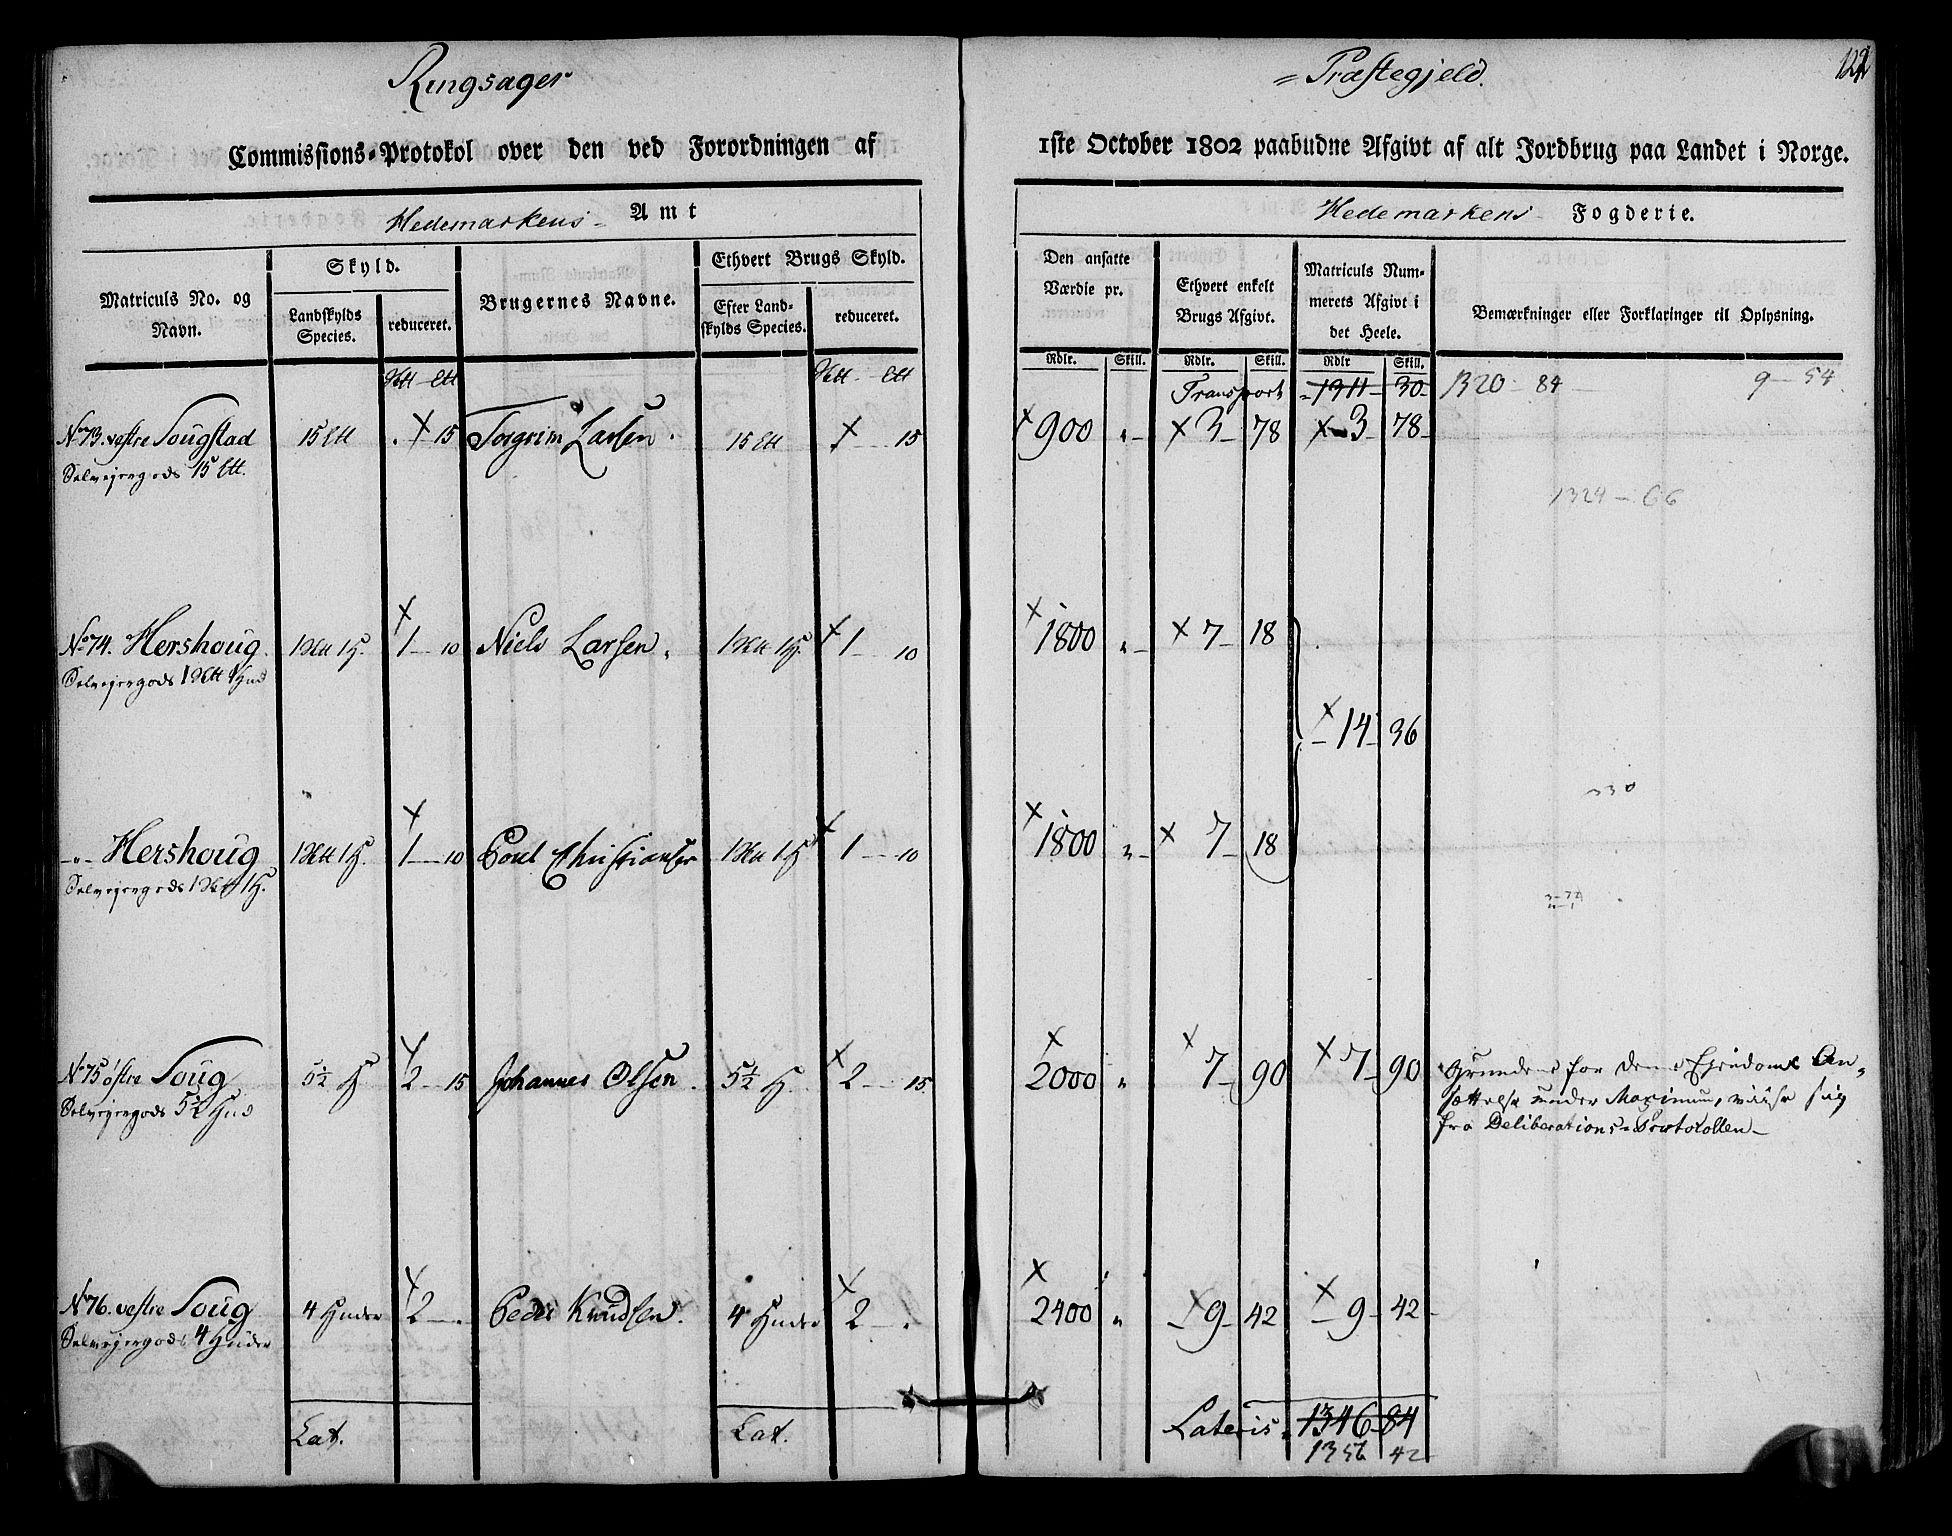 Ringsager = Præstegjeld. 122
Commissions-Protokol over den ved Forordningen af 1ste October 1802 paabudne Afgivt af alt Jordbrug paa Landet i Norge.
Hedemarkens Amt
Hedemarkens Fogderie.
Matriculs No. og Navn.
Skyld.
Landskylds Species.
reduceret.
Brugernes Navne.
Ethvert Brugs Skyld.
Efter Landskylds Species.
reduceret.
Den ansatte Værdie pr.
Ethvert enkelt Brugs Afgivt.
Matriculs Nummerets Afgivt i det Heele.
Bemærkninger eller Forklaringer til Oplysning.
Rdlr. Skill. Rdlr. Skill. Rdlr Skill.
Transport 1311 30 1320 84 9 54
No 73. vestre Sougstad 15 15 Torgrim Larsen. 15 15 900 " 3 78 3 78
Selvejergods 15
1324 - 66
No 74. Hershoug. 1 1 H. 1 10 Niels Larsen. 1 1 H. 1 10 1800 " 7 18
Selvejergods 1 1 Hud
14 36
" Hershoug 1 1 H. 1 10 Poul Christiansen 1 1 H 1 10 1800 " 7 18
Selvejergods 1 1 H.
No 75 østre Soug 5½ H 2 15 Johannes Olsen. 5½ H. 2 15 2000 " 7 90 7 90 Grundene for denne Ejendoms An-
Selvejergods 5½ Hud sættelse under Maximum, viise sig
fra Deliberations-Protocollen
No 76. vestre Soug 4 Huder 2 . Peder Knudsen. 4 Huder 2 . 2400 " 9 42 9 42
Selvejergods 4 Huder
Lat. Lat. Lateris 1346 84
1356 42